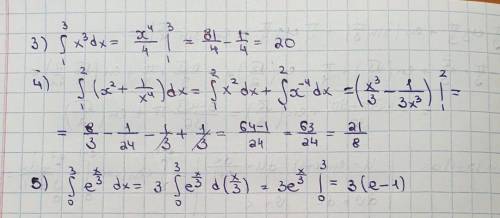 3) ∫₁³ x³ dx = x⁴/4 |₁³ = 81/4 - 1/4 = 20
4) ∫₁² (x² + 1/x⁴) dx = ∫₁² x² dx + ∫₁² x⁻⁴ dx = (x³/3 - 1/3x³) |₁² =
= 8/3 - 1/24 - 1/3 + 1/3 = 64-1/24 = 63/24 = 21/8
5) ∫₀³ e^(x/3) dx = 3 ∫₀³ e^(x/3) d(x/3) = 3e^(x/3) |₀³ = 3(e-1)